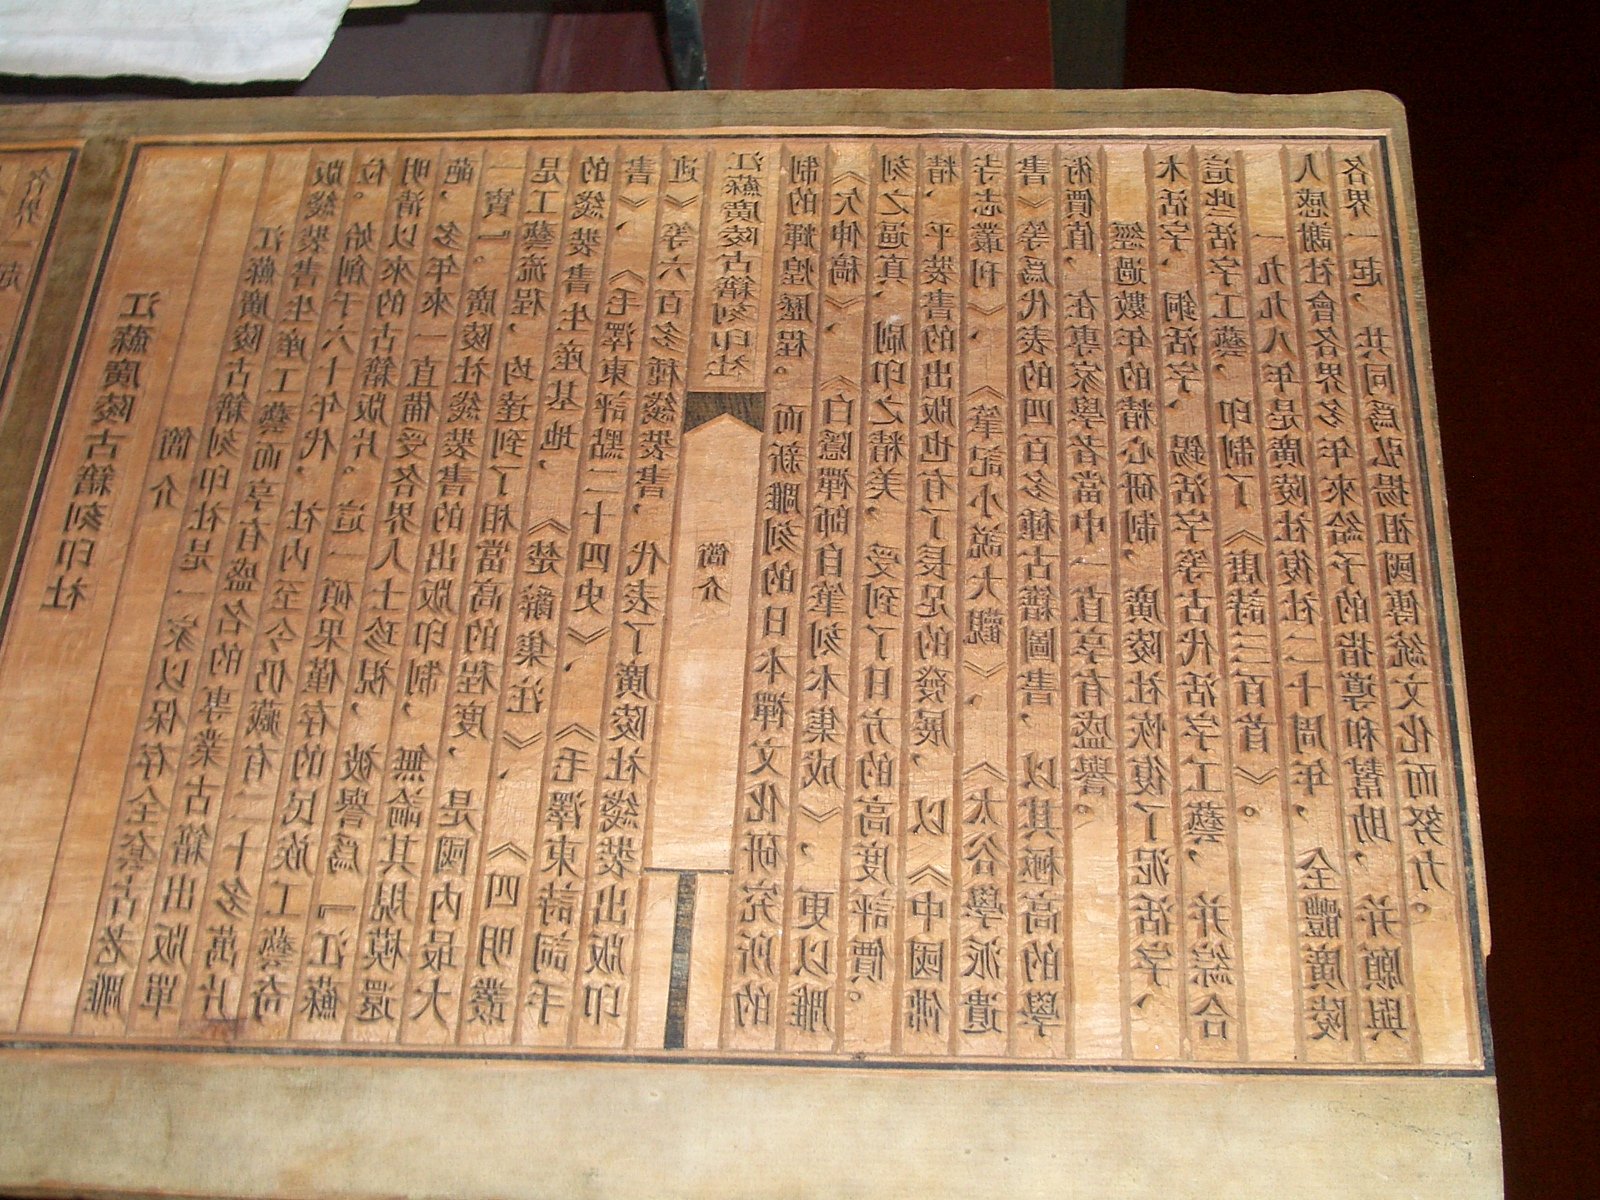 江蘇廣陵古籍刻印社
簡介
江蘇廣陵古籍刻印社是一家以保存全套古老雕
版綫裝書生産工藝而享有盛名的專業古籍出版單
位。始創于六十年代，社内至今仍藏有二十多萬片
明清以來的古籍版片。這一碩果僅存的民族工藝奇
葩，多年來一直備受各界人士珍視，被譽爲『江蘇
一寶』。廣陵社綫裝書的出版印制，無論其規模還
是工藝流程，均達到了相當高的程度，是國内最大
的綫裝書生産基地，《楚辭集注》、《四明叢
書》、《毛澤東評點二十四史》、《毛澤東詩詞手
迹》等六百多種綫裝書，代表了廣陵社綫裝出版印
江蘇廣陵古籍刻印社
簡介
制的輝煌歷程。而新雕刻的日本禪文化研究所的
《欠伸稿》、《白隱禪師自筆刻本集成》，更以雕
刻之逼真、刷印之精美，受到了日方的高度評價。
精、平裝書的出版也有了長足的發展，以《中國佛
寺志叢刊》、《筆記小説大觀》、《太谷學派遺
書》等爲代表的四百多種古籍圖書，以其極高的學
術價值，在專家學者當中一直享有盛譽。
經過數年的精心研制，廣陵社恢復了泥活字、
木活字、銅活字、錫活字等古代活字工藝，并綜合
這些活字工藝，印制了《唐詩三百首》。
一九九八年是廣陵社復社二十周年，全體廣陵
人感謝社會各界多年來給予的指導和幫助，并願與
各界一起，共同爲弘揚祖國傳統文化而努力。
各界一起